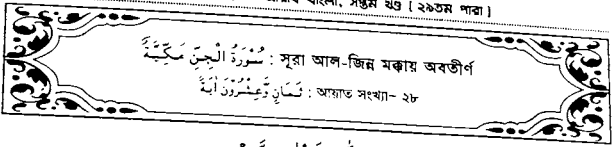 বাংলা, সপ্তম খণ্ড [ ২৯তম পারা ]
سُوْرَةُ الْجِنِّ مَكِّيَّةٌ : সূরা আল-জিন্ন মক্কায় অবতীর্ণ
ثَمَانٍ وَّعِشْرُوْنَ اٰيَةً : আয়াত সংখ্যা– ২৮